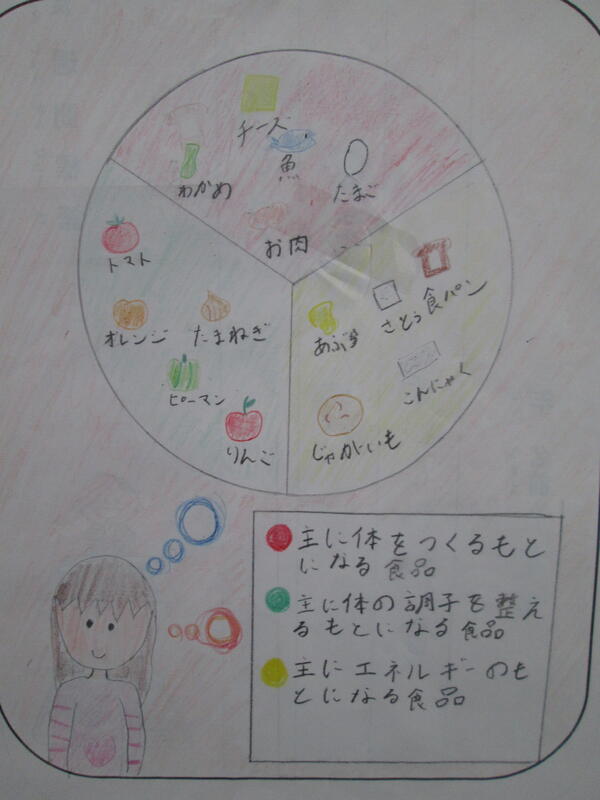 チーズ
魚
わかめ
たまご
お肉
トマト
オレンジ
たまねぎ
ピーマン
りんご
食パン
さとう
こんにゃく
じゃがいも
主に体をつくるもと
になる食品
主に体の調子を整え
るもとになる食品
主にエネルギーのも
とになる食品